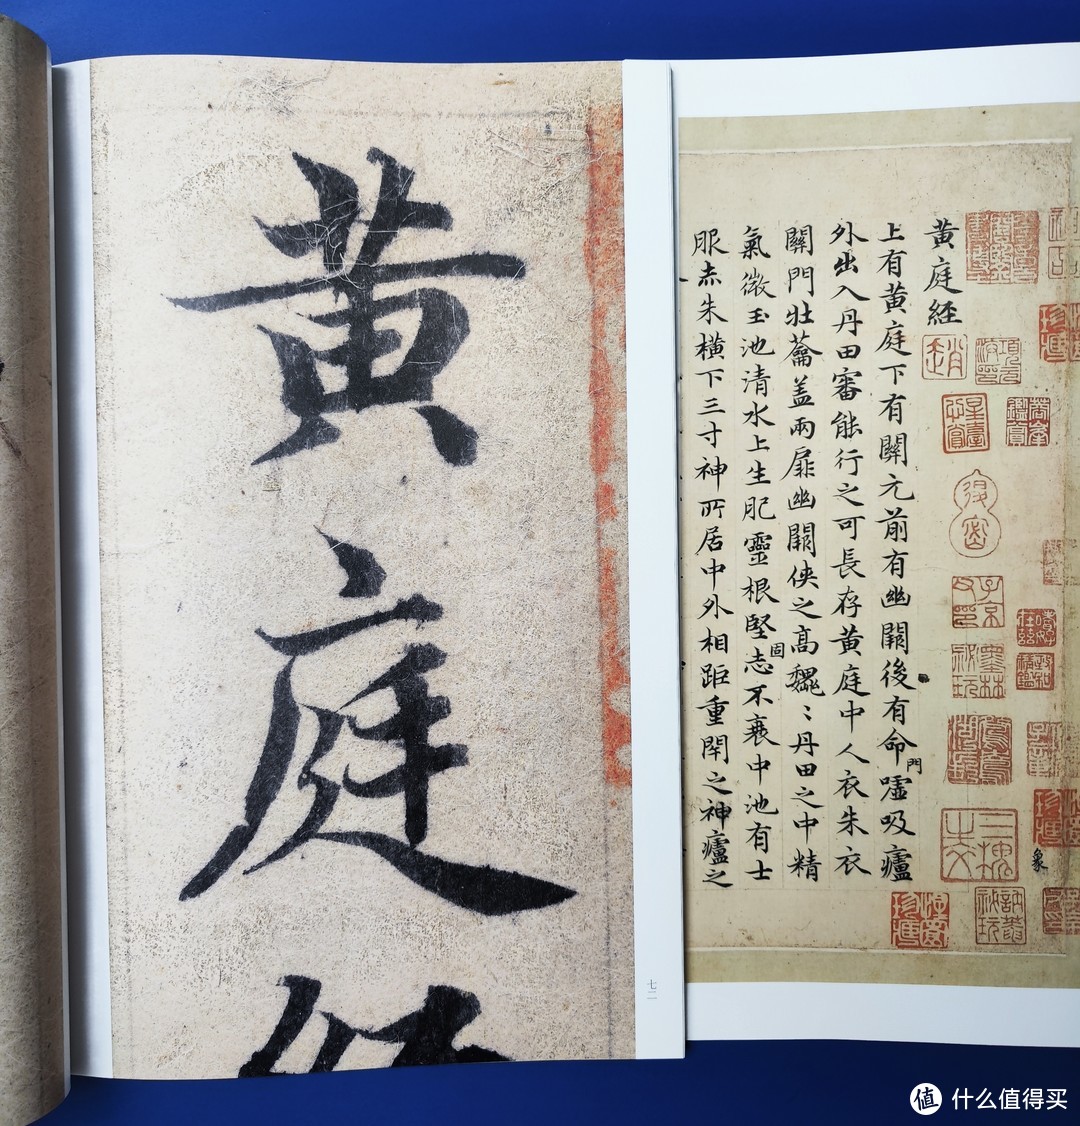 黃
庭
七二
黃庭經
上有黃庭下有關元前有幽闕後有命門噓吸廬
外出入丹田審能行之可長存黃庭中人衣朱衣
關門壯蘥蓋兩扉幽闕俠之高巍〻丹田之中精
氣微玉池清水上生肥靈根堅固志不衰中池有士
服赤朱橫下三寸神所居中外相距重閉之神廬之
值 什么值得买